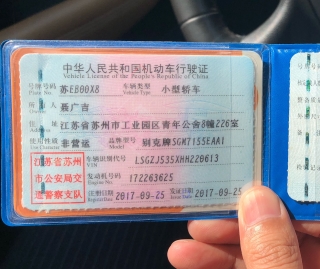 中华人民共和国机动车行驶证
Vehicle License of the People's Republic of China
号牌号码 苏EB00X8 车辆类型 小型轿车
Plate No. Vehicle Type
所有人 聂广吉
住址 江苏省苏州市工业园区青年公舍8幢226室
使用性质 非营运 品牌型号 别克牌SGM7155EAA1
Use Character Model
江苏省苏州市公安局交通警察支队
车辆识别代号 LSGZJ535XHH220613
VIN
发动机号码 172263625
Engine No.
注册日期 2017-09-25 发证日期 2017-09-25
Register Date Issue Date